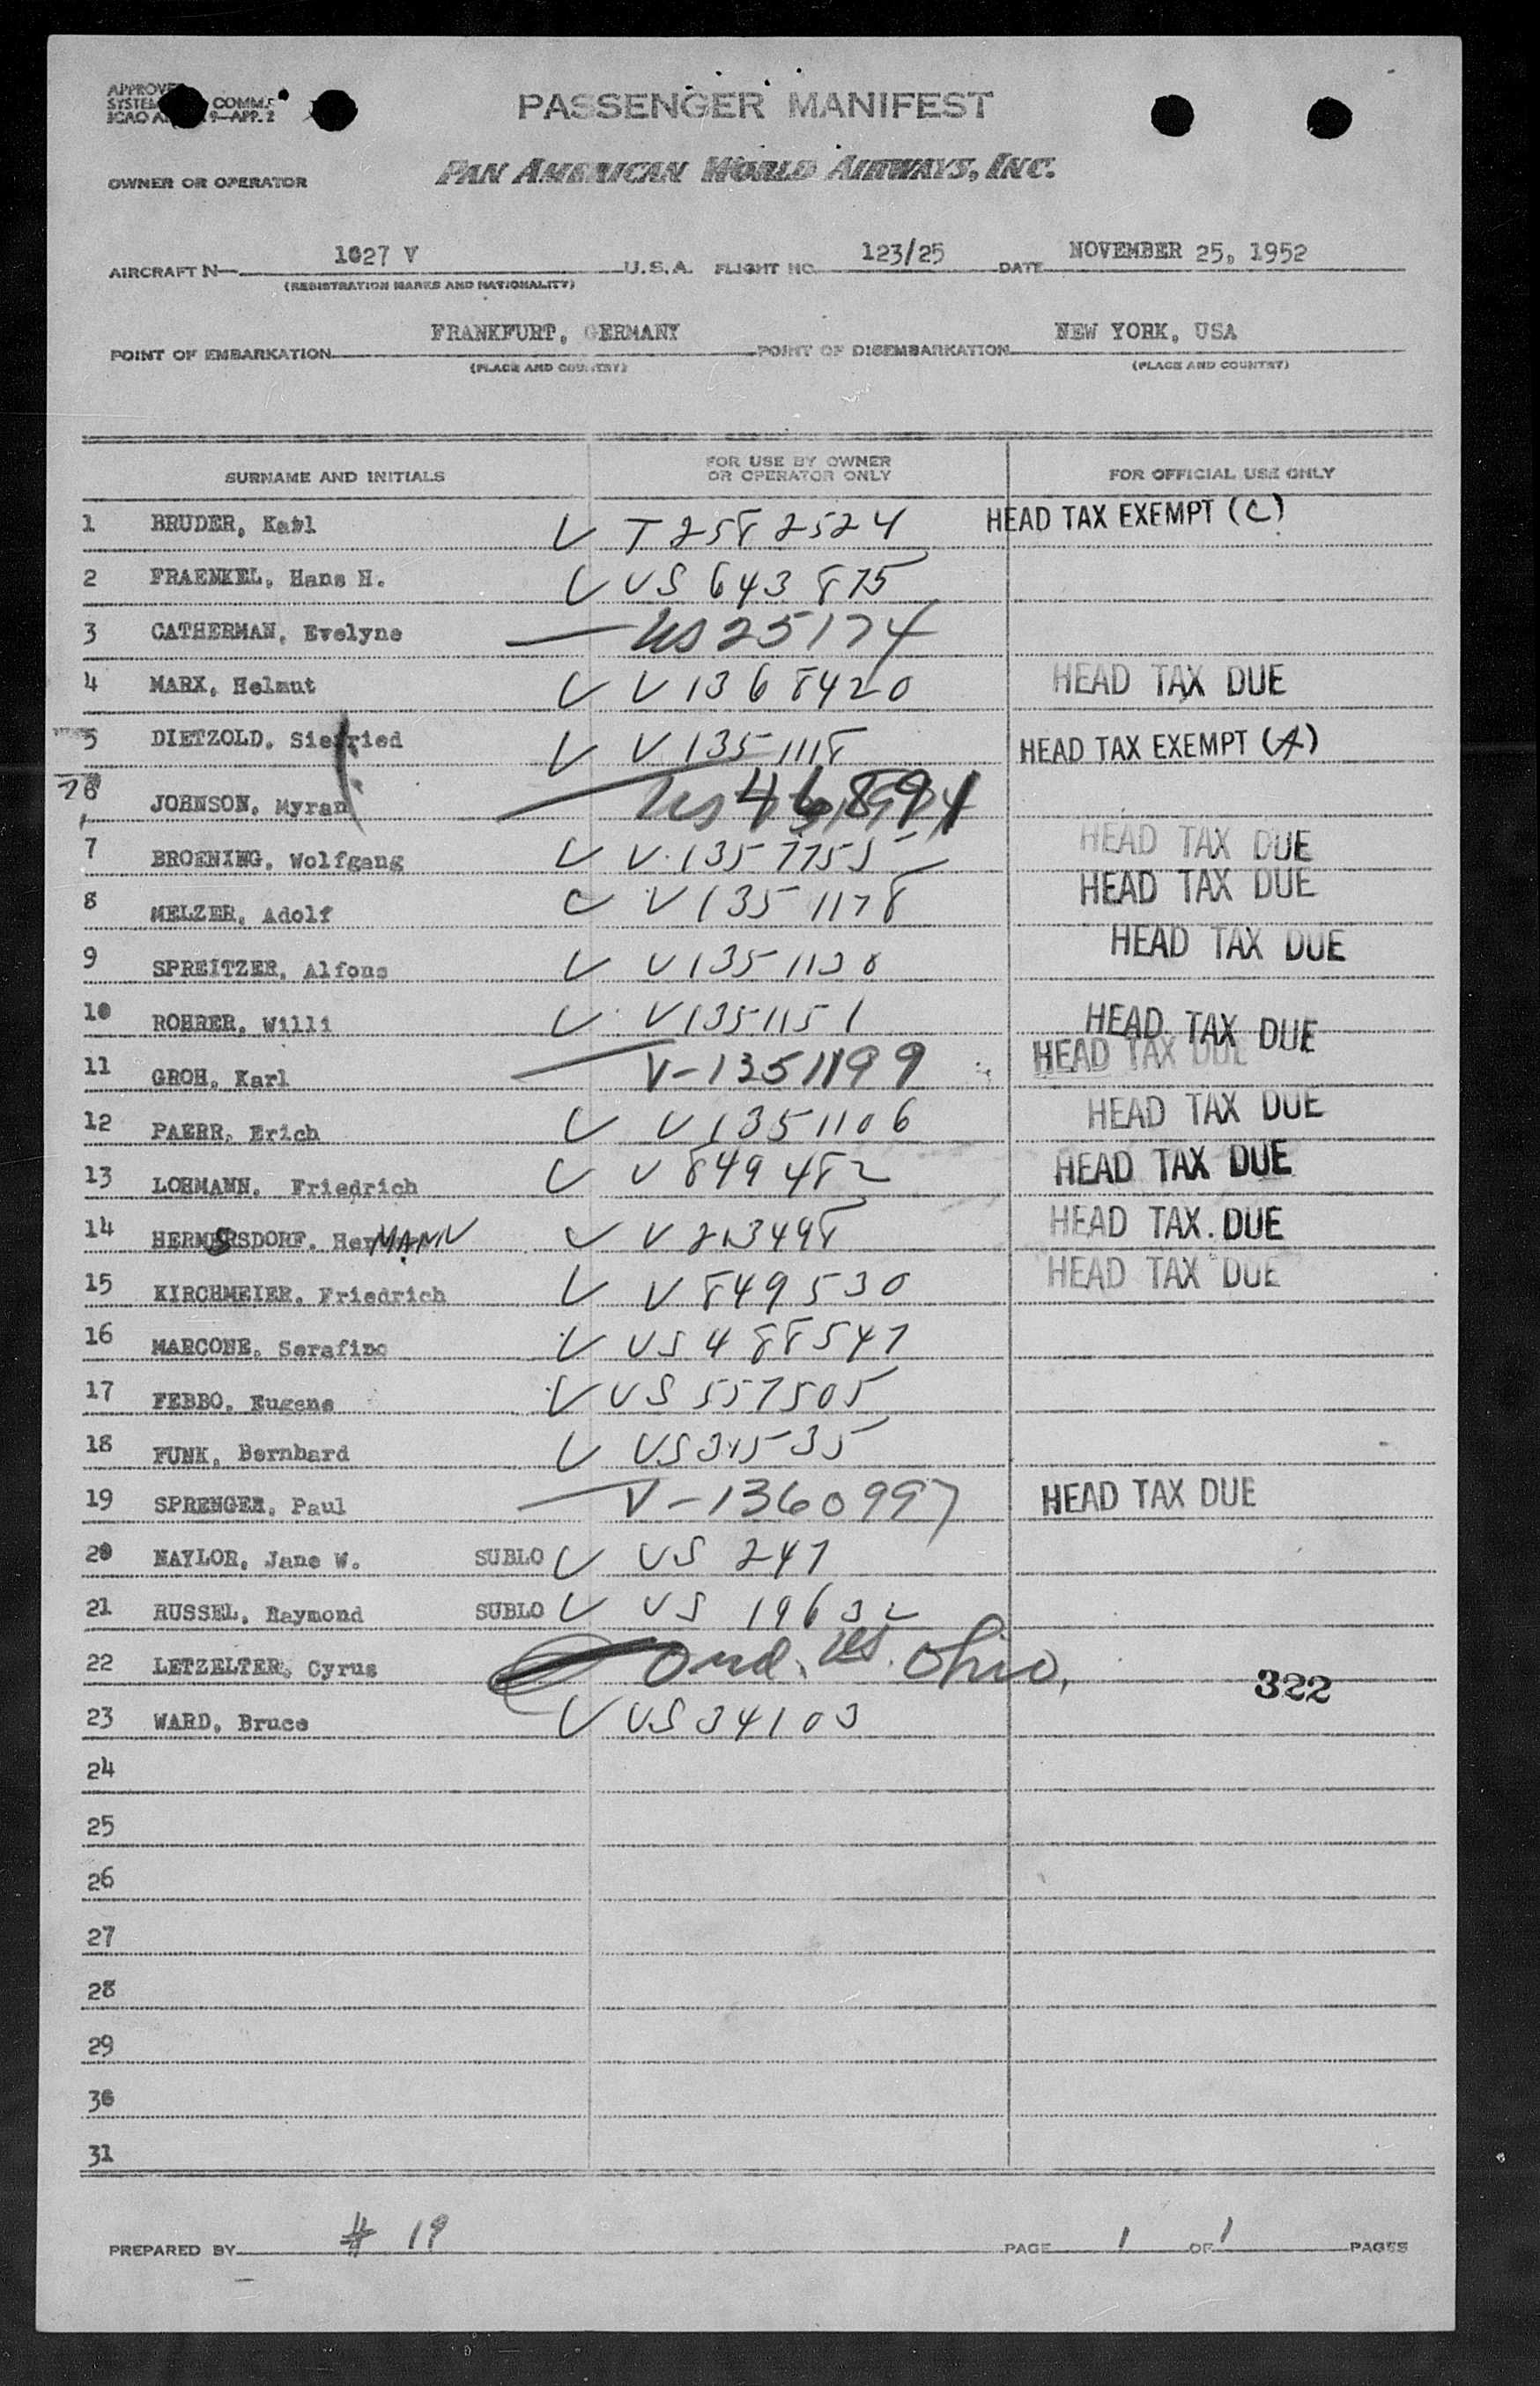 APPROVED
SYSTEM COMM.
ICAO 9-APP. 2
PASSENGER MANIFEST
OWNER OR OPERATOR PAN AMERICAN WORLD AIRWAYS, INC.
AIRCRAFT N 1027 V U.S.A. FLIGHT NO. 123/25 DATE NOVEMBER 25, 1952
(REGISTRATION MARKS AND NATIONALITY)
POINT OF EMBARKATION FRANKFURT, GERMANY POINT OF DISEMBARKATION NEW YORK, USA
(PLACE AND COUNTRY) (PLACE AND COUNTRY)
SURNAME AND INITIALS FOR USE BY OWNER OR OPERATOR ONLY FOR OFFICIAL USE ONLY
1 BRUDER, Karl V T2582524 HEAD TAX EXEMPT (C)
2 FRAENKEL, Hans H. V US 643875
3 CATHERMAN, Evelyne — US 25174
4 MARX, Helmut V V1368420 HEAD TAX DUE
5 DIETZOLD, Siegfried V V1351118 HEAD TAX EXEMPT (A)
6 JOHNSON, Myran — US
7 BROENING, Wolfgang V V1357755 HEAD TAX DUE
8 MELZER, Adolf V V1351178 HEAD TAX DUE
9 SPREITZER, Alfons V V1351130 HEAD TAX DUE
10 ROHRER, Willi V V1351151 HEAD TAX DUE
11 GROH, Karl — V-1351199 HEAD TAX DUE
12 PAERR, Erich V V1351106 HEAD TAX DUE
13 LOHMANN, Friedrich V V849482 HEAD TAX DUE
14 HERMSRSDORF, HerMANN V HEAD TAX DUE
15 KIRCHMEIER, Friedrich V V849530 HEAD TAX DUE
16 MARCONE, Serafino V US 488547
17 FEBBO, Eugene V US 557505
18 FUNK, Bernhard V US
19 SPRENGER, Paul — V-1360997 HEAD TAX DUE
20 NAYLOR, Jane W. SUBLO V US 247
21 RUSSEL, Raymond SUBLO V US 19632
22 LETZELTER, Cyrus US. Ohio, 322
23 WARD, Bruce V US 34103
24
25
26
27
28
29
30
31
PREPARED BY # 19 PAGE 1 OF 1 PAGES